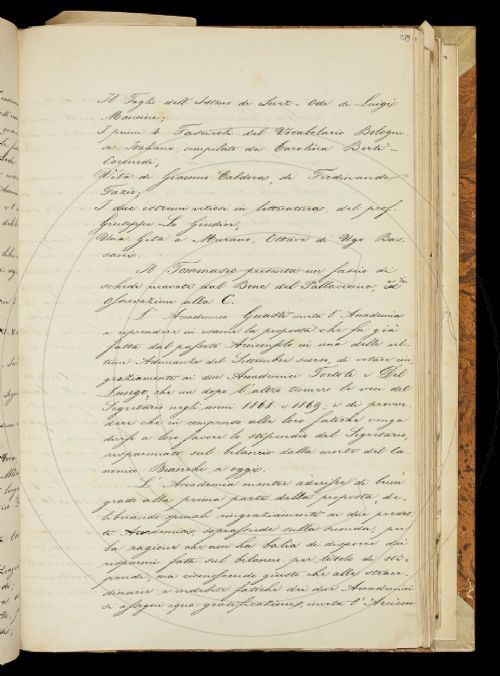 219
Il Taglio dell'Istmo di Suez - Ode di Luigi
Mancini;
I primi 4 Fascicoli del Vocabolario Bologne-
se Italiano compilato da Carolina Berti -
Coronedi;
Vita di Giacomo Caldora, di Ferdinando
Fazio;
I due estremi viziosi in letteratura, del prof.
Giuseppe Lo Giudice;
Una Gita a Murano, Ottave di Ugo Bas-
sano.
Il Tommaseo presenta un fascio di
schede ricavate dal Bene del Pallavicino, ed
osservazioni alla C.
L'Accademico Guasti invita l'Accademia
a riprendere in esame la proposta che fu già
fatta dal passato Arciconsolo in una delle ul-
time Adunanze del Settembre scorso, di votare un
ringraziamento ai due Accademici Tortoli e Del
Lungo, che un dopo l'altro tennero le veci del
Segretario negli anni 1868 e 1869; e di provve-
dere che in compenso alle loro fatiche venga
diviso a loro favore lo stipendio del Segretario,
risparmiato sul bilancio dalla morte del Ca-
nonico Bianchi a oggi.
L'Accademia mentre aderisce di buon
grado alla prima parte della proposta, de-
liberando grandi ringraziamenti ai due predet-
ti Accademici, soprassiede sulla seconda, per
la ragione che non ha balìa di disporre dei
risparmi fatti sul bilancio per titolo de sti-
pendi; ma riconoscendo giusto che alle straor-
dinarie e indebite fatiche dei due Accademici
si assegni equa gratificazione, invita l'Arcicon